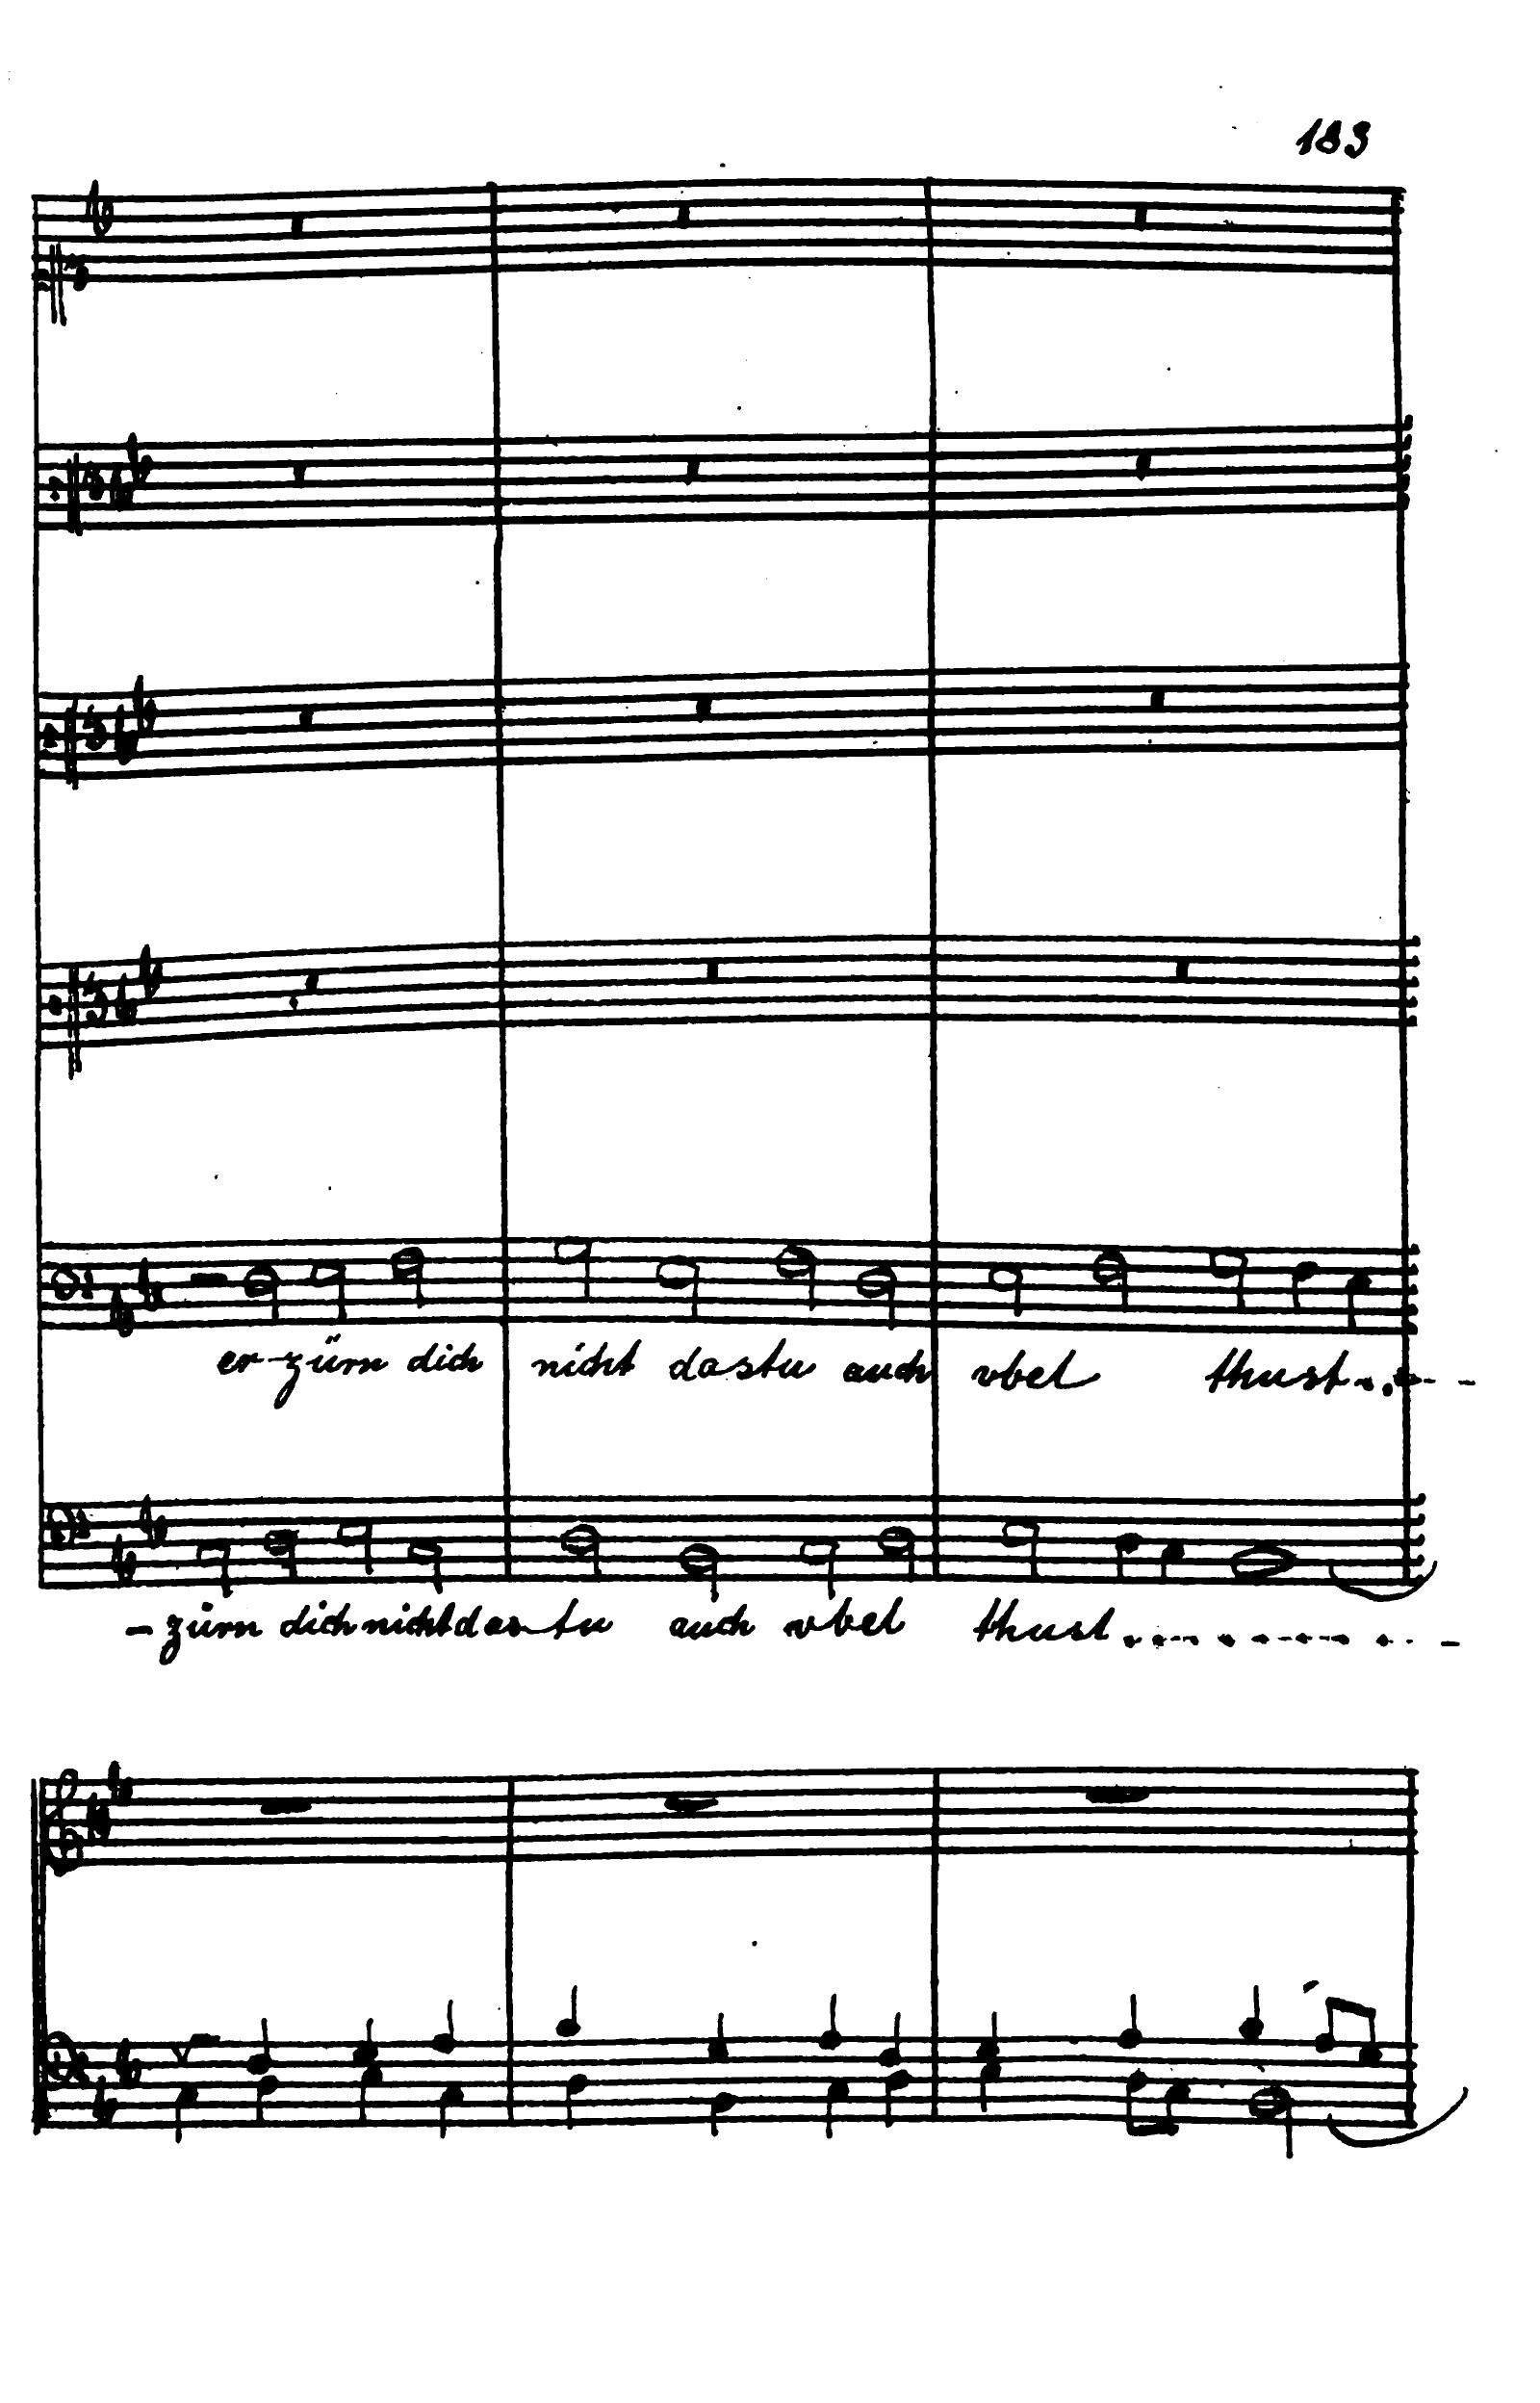 183
er-zürn dich nicht dastu auch vbel thust
-zürn dich nicht das-tu auch vbel thust